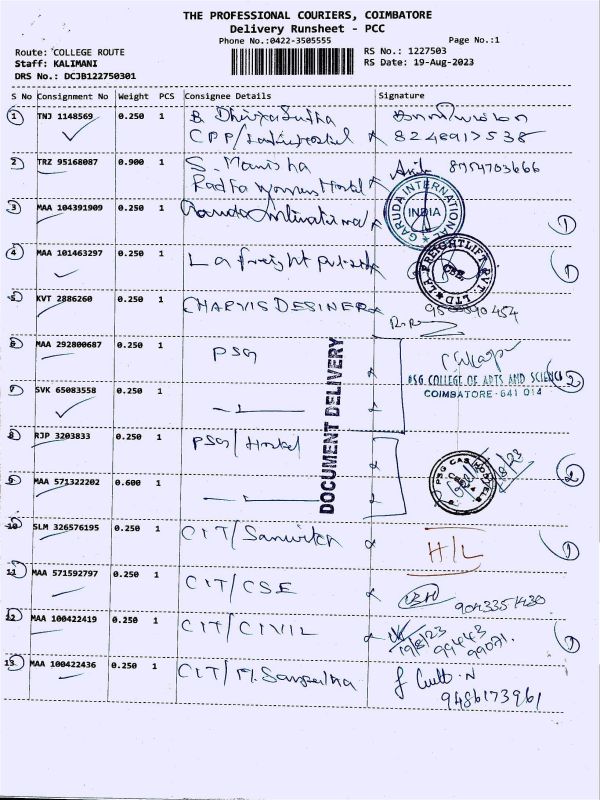 THE PROFESSIONAL COURIERS, COIMBATORE
Delivery Runsheet - PCC
Phone No.:0422-3505555 Page No.:1
Route: COLLEGE ROUTE RS No.: 1227503
Staff: KALIMANI RS Date: 19-Aug-2023
DRS No.: DCJB122750301
S No Consignment No Weight PCS Consignee Details Signature
1 TNJ 1148569 0.250 1
8248917538
2 TRZ 95168087 0.900 1 S. Manisha 8754703666
Womens Hostel
3 MAA 104391909 0.250 1 Garuda International GARUDA INTERNATIONAL INDIA 1
4 MAA 101463297 0.250 1 La freight pvt LA FREIGHTLIFT PVT. LTD CBE 1
5 KVT 2886260 0.250 1 CHARVIS DESINER
6 MAA 292800687 0.250 1 PSG
PSG COLLEGE OF ARTS AND SCIENCE 2
COIMBATORE - 641 014
7 SVK 65083558 0.250 1
DOCUMENT DELIVERY
8 RJP 3203833 0.250 1 PSG/Hostel PSG CAS HOSTEL 2
9 MAA 571322202 0.600 1
10 SLM 326576195 0.250 1 CIT/ H/L 1
11 MAA 571592797 0.250 1 CIT/CSE
9043351430
12 MAA 100422419 0.250 1 CIT/CIVIL 19/8/23 99443 1
99071
13 MAA 100422436 0.250 1 CIT/
9486173961